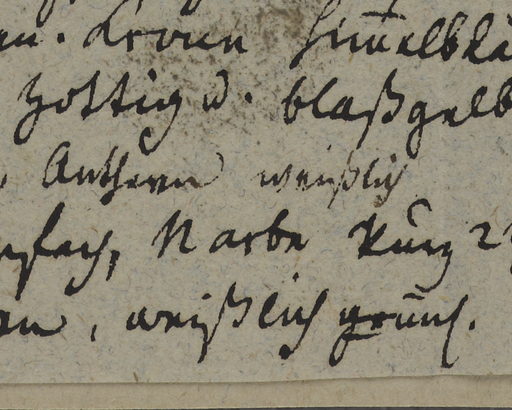 Krone Himelblä
zottig u. blaßgelb
Antheren weißlich
fach, Narbe kurz 2
en, weißlich grün.